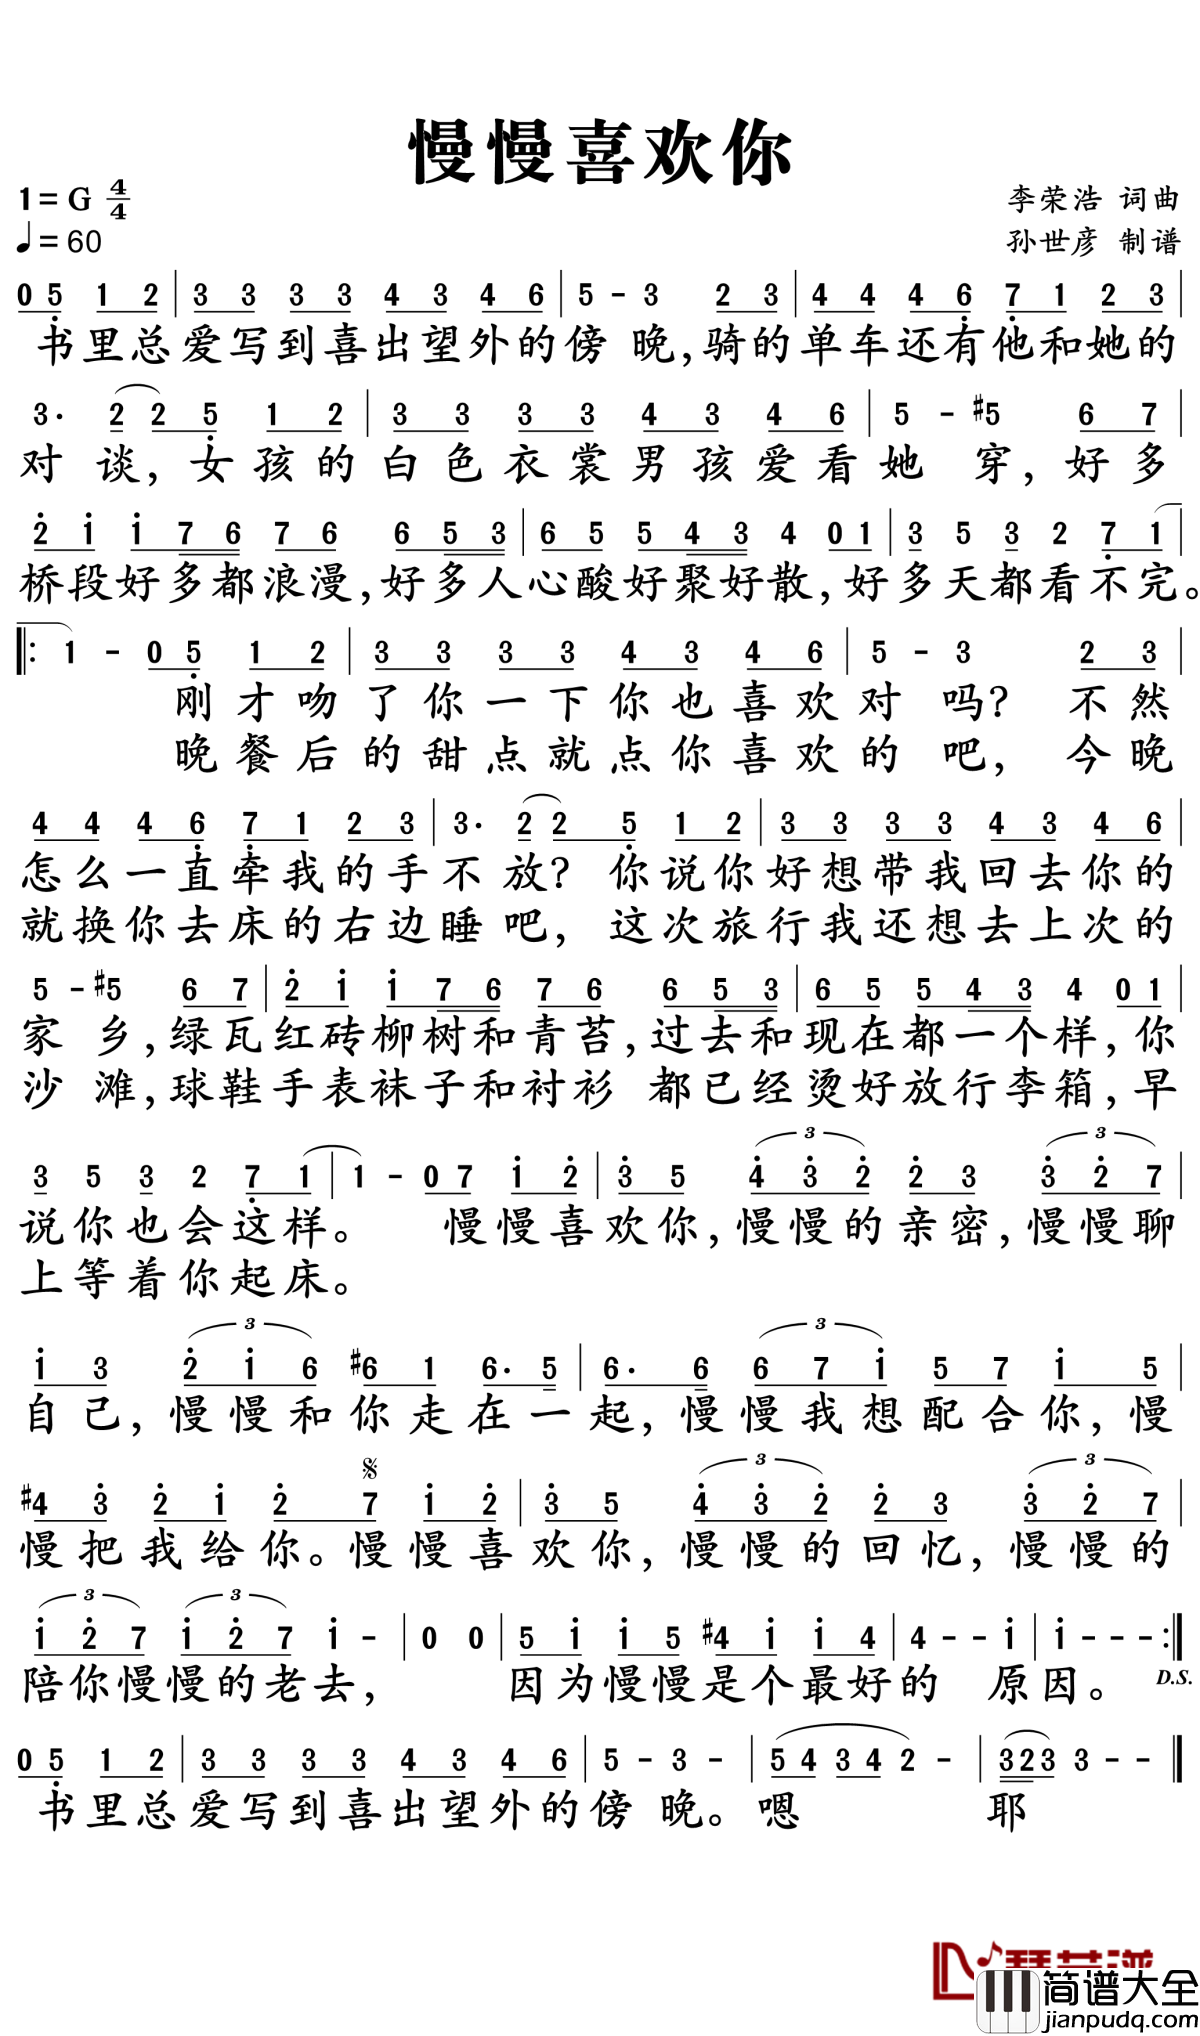 慢慢喜欢你
1=G 4/4
♩=60
李荣浩 词曲
孙世彦 制谱
0 5̣ 1 2 | 3 3 3 3 4 3 4 6 | 5 - 3 2 3 | 4 4 4 6̣ 7̣ 1 2 3 |
书里总爱写到喜出望外的傍晚,骑的单车还有他和她的
3· 2 2 5̣ 1 2 | 3 3 3 3 4 3 4 6 | 5 - #5 6 7 |
对谈,女孩的白色衣裳男孩爱看她穿,好多
2̇ 1̇ 1̇ 7 6 7 6 6 5 3 | 6 5 5 4 3 4 0 1 | 3 5 3 2 7̣ 1 |
桥段好多都浪漫,好多人心酸好聚好散,好多天都看不完。
‖: 1 - 0 5̣ 1 2 | 3 3 3 3 4 3 4 6 | 5 - 3 2 3 |
刚才吻了你一下你也喜欢对吗?不然
晚餐后的甜点就点你喜欢的吧,今晚
4 4 4 6̣ 7̣ 1 2 3 | 3· 2 2 5̣ 1 2 | 3 3 3 3 4 3 4 6 |
怎么一直牵我的手不放?你说你好想带我回去你的
就换你去床的右边睡吧,这次旅行我还想去上次的
5 - #5 6 7 | 2̇ 1̇ 1̇ 7 6 7 6 6 5 3 | 6 5 5 4 3 4 0 1 |
家乡,绿瓦红砖柳树和青苔,过去和现在都一个样,你
沙滩,球鞋手表袜子和衬衫 都已经烫好放行李箱,早
3 5 3 2 7̣ 1 | 1 - 0 7 1̇ 2̇ | 3̇ 5 4̇ 3̇ 2̇ 2̇ 3 3̇ 2̇ 7 |
3 3
说你也会这样。 慢慢喜欢你,慢慢的亲密,慢慢聊
上等着你起床。
1̇ 3 2̇ 1̇ 6 #6 1 6· 5 | 6· 6 6 7 1̇ 5 7 1̇ 5 |
3 3
自己,慢慢和你走在一起,慢慢我想配合你,慢
#4 3̇ 2̇ 1̇ 2̇ 7 1̇ 2̇ | 3̇ 5 4̇ 3̇ 2̇ 2̇ 3 3̇ 2̇ 7 |
𝄋 3 3
慢把我给你。慢慢喜欢你,慢慢的回忆,慢慢的
1̇ 2̇ 7 1̇ 2̇ 7 1̇ - | 0 0 | 5 1̇ 1̇ 5 #4 1̇ 1̇ 4 | 4 - - 1̇ | 1̇ - - - :‖
3 3
陪你慢慢的老去, 因为慢慢是个最好的 原因。 D.S.
0 5̣ 1 2 | 3 3 3 3 4 3 4 6 | 5 - 3 - | 5 4 3 4 2 - | 3 2 3 3 - - ‖
书里总爱写到喜出望外的傍晚。嗯 耶
简谱大全
jianpudq.com